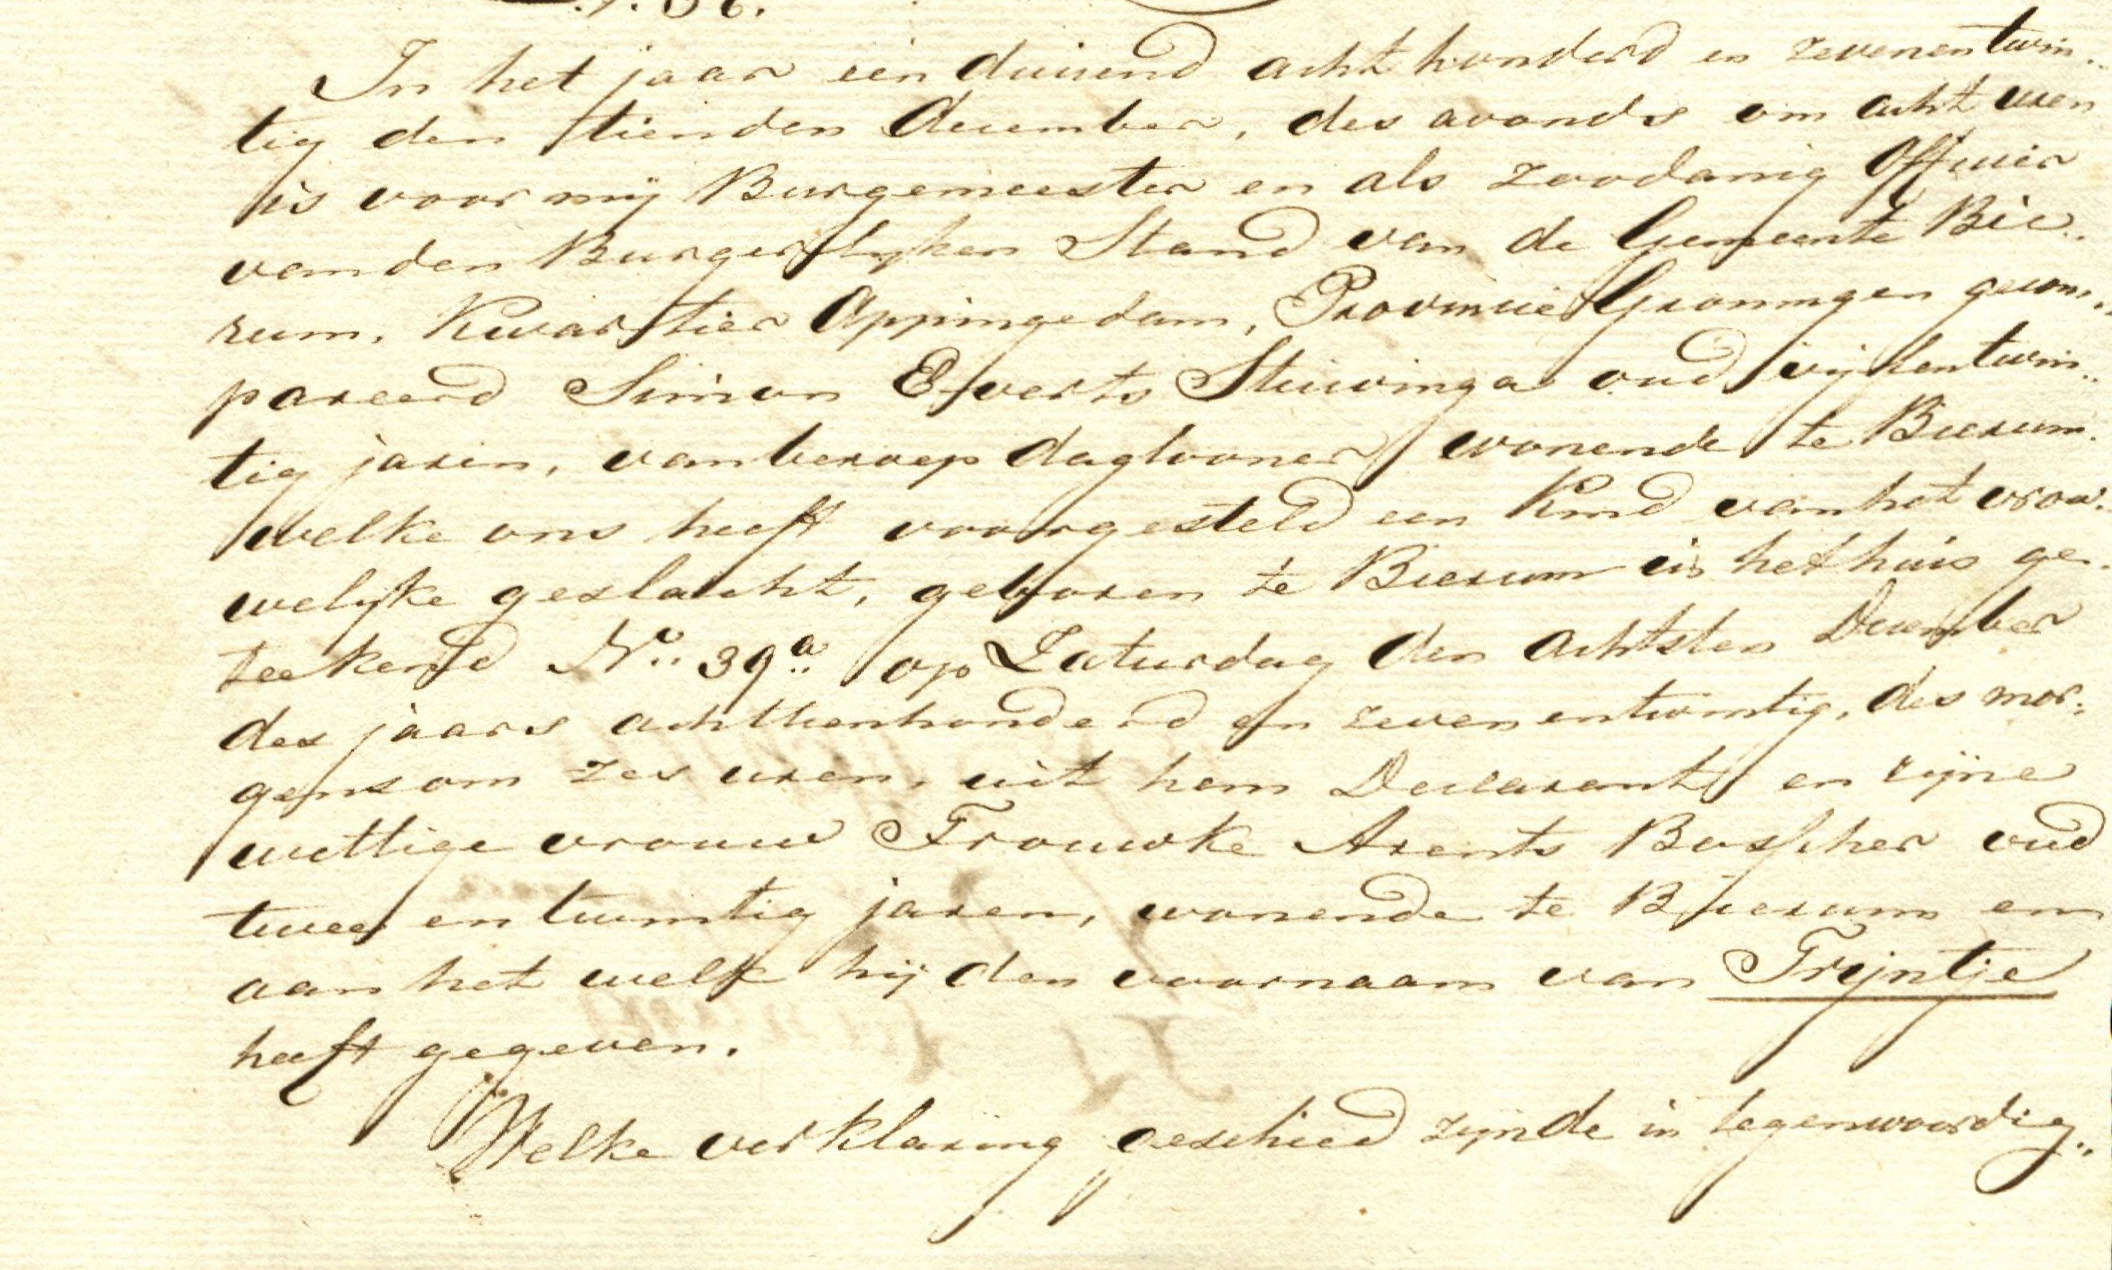 In het jaar een duizend acht honderd en zevenentwin..
tig den tienden December, des avonds om acht uren
is voor mij Burgemeester en als zoodanig Officier
van den Burgerlyken Stand van de Gemeente Bie..
rum, Kwartier Appingedam, Provincie Groningen gecom..
pareerd Simon Everts Stuivinga oud vijfentwin..
tig jaren, van beroep daglooner, wonende te Bierum.
welke ons heeft voorgesteld een Kind van het vrou..
welijke geslacht, geboren te Bierum in het huis ge..
teekend No. 39a op Zaturdag den achtsten December
des jaars achttienhonderd en zevenentwintig, des mor..
gens om zes uren, uit hem Declarant en zijne
wettige vrouw Trouwke Arents Bosscher oud
twee en twintig jaren, wonende te Bierum en
aan het welk hij den voornaam van Trijntje
heeft gegeven.
Welke verklaring geschied zijnde in tegenwoordig..